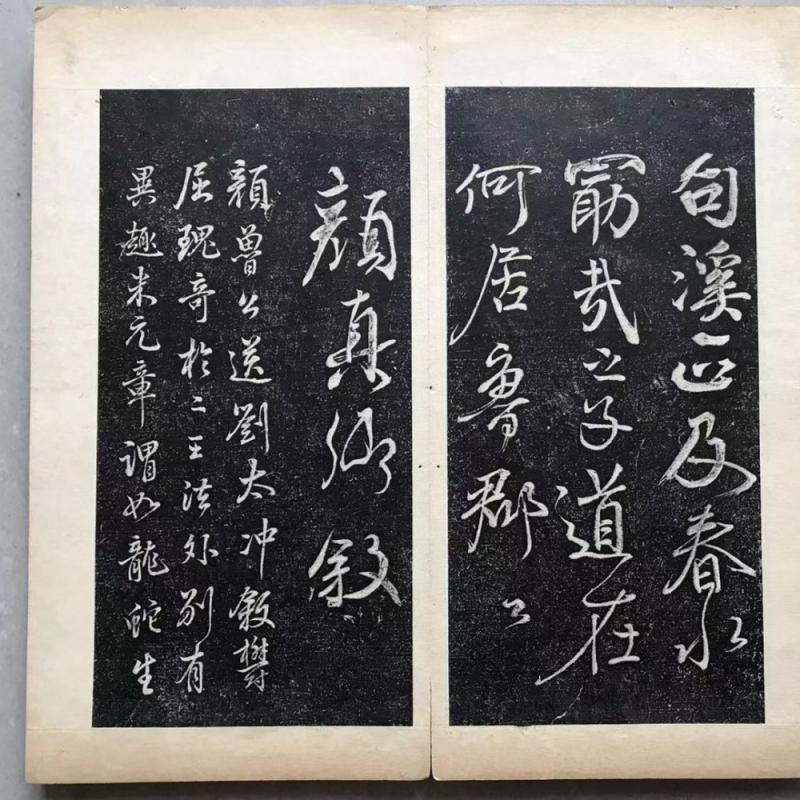 句溪正及春水
勖哉之子道在
何居魯郡公
顏真卿叙
顏魯公送劉太冲敘鬱
屈瑰奇於二王法外別有
異趣米元章謂如龍蛇生